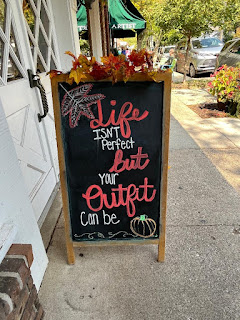 ARTIST
Life
ISN'T
Perfect
but
Your
Outfit
Can be